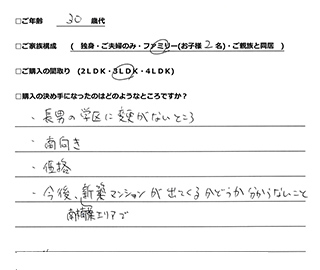 □ご年齢 30 歳代
□ご家族構成 ( 独身・ご夫婦のみ・ファミリー(お子様 2 名)・ご親族と同居 )
□ご購入の間取り (2LDK・3LDK・4LDK)
□購入の決め手になったのはどのようなところですか?
・長男の学区に変更がないところ
・南向き
・価格
・今後、新築マンションが出てくるかどうか分からないこと
エリアで